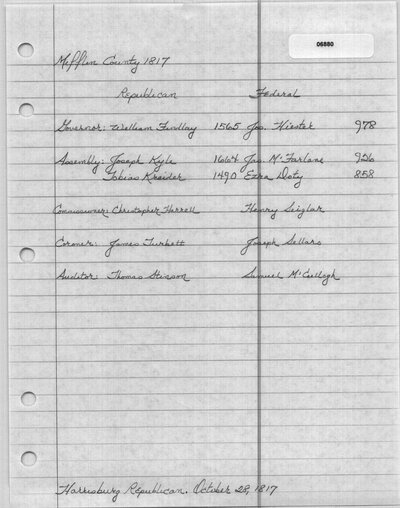 06880
Mifflin County 1817
Republican Federal
Governor: William Findlay 1565 Jos. Hiester 978
Assembly: Joseph Kyle 1664 Jas. McFarlane 926
Tobias Kreider 1490 Ezra Doty 858
Commissioner: Christopher Harrell Henry Seiglar
Coroner: James Turbett Joseph Sellars
Auditor: Thomas Stinson Samuel McCullogh
Harrisburg Republican. October 28, 1817